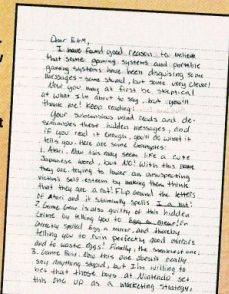 Dear EGM,
I have found good reason to believe
that some gaming systems and portable
gaming systems have been disguising some
messages - some stupid, but some very clever!
Now you may at first be skeptical
at what I'm about to say, but you'll
thank me! Keep reading:
Your subconscious mind reads and de-
scrambles these hidden messages, and
if you read it enough, you'll do what it
tells you. Here are some examples:
1. Atari. Now this may seem like a cute
Japanese word, but NO! With this name
they are trying to lower an unsuspecting
victim's self esteem by making them think
that they are a rat! Flip around the letters
of Atari and it subliminally spells I a rat!
2. Game Gear is also guilty of this hidden
crime by telling you to Egg a
Gamegear spelled Egg a and thereby
telling you to ruin perfectly good
and to waste eggs! Finally, the
3. Game Boy. Now this one doesn't really
say anything stupid, but I'm willing to
bet that those boys at Nintendo set
this one up as a marketing strategy,